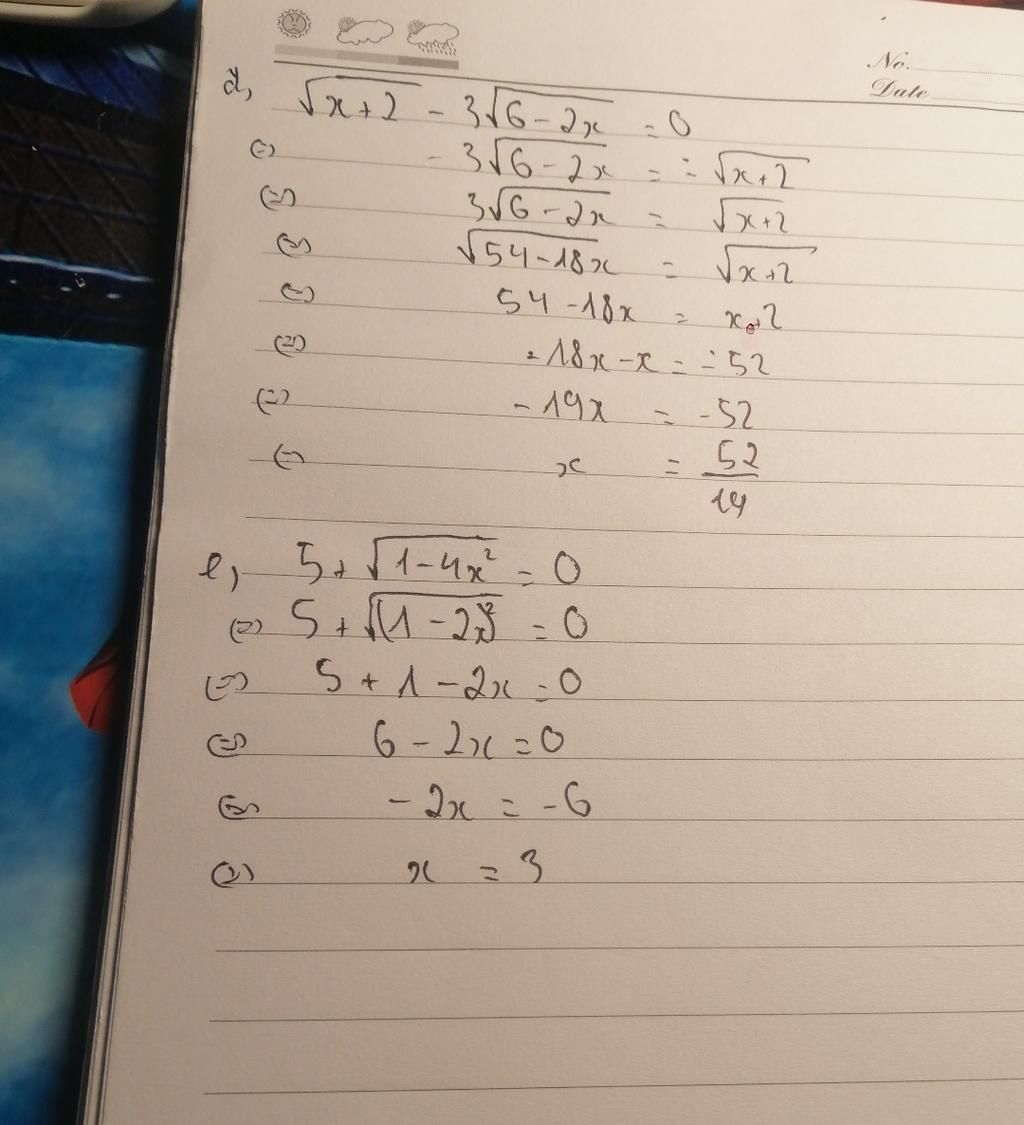 No.
Date
d, √(x+2) - 3√(6-2x) = 0
(=) - 3√(6-2x) = -√(x+2)
(=) 3√(6-2x) = √(x+2)
(=) √(54-18x) = √(x+2)
(=) 54-18x = x+2
(=) -18x-x = -52
(=) -19x = -52
(=) x = 52/19
e, 5+√(1-4x²) = 0
(=) 5+√(1-2x)² = 0
(=) 5+1-2x=0
(=) 6-2x=0
(=) -2x = -6
(=) x = 3